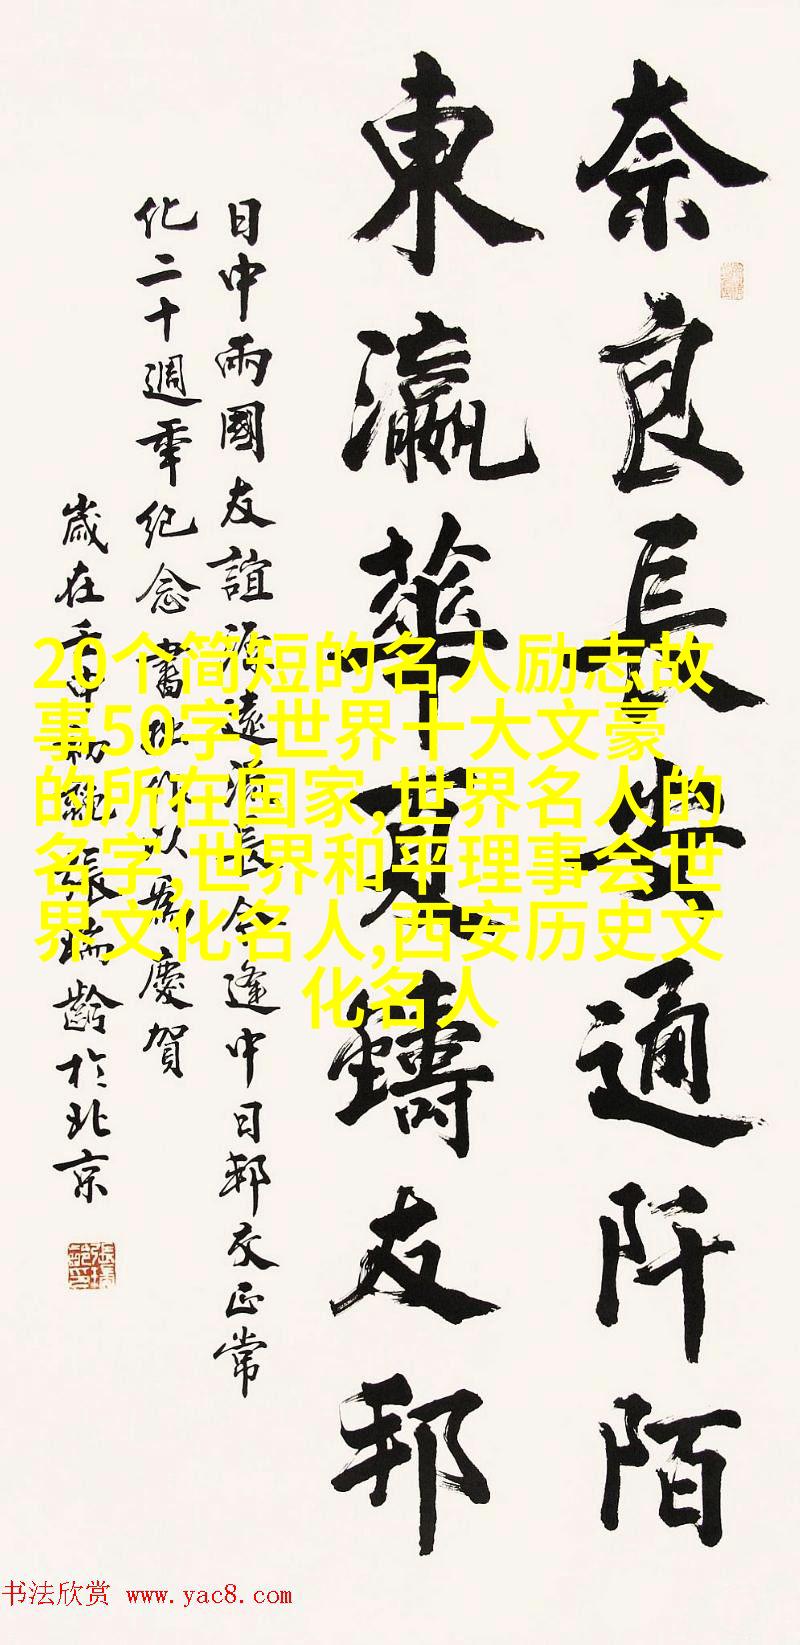 奈良長安通阡陌
東瀛華夏鑄友邦
日中兩國友誼源遠流長今逢中日邦交正常
化二十週年紀念書拙作以為慶賀
歲在壬申初張瑞齡於北京
20个简短的名人励志故
事50字,世界十大文豪
的所在国家,世界名人的
名字,世界和平理事会世
界文化名人,西安历史文
化名人
书法欣赏 www.yac8.com